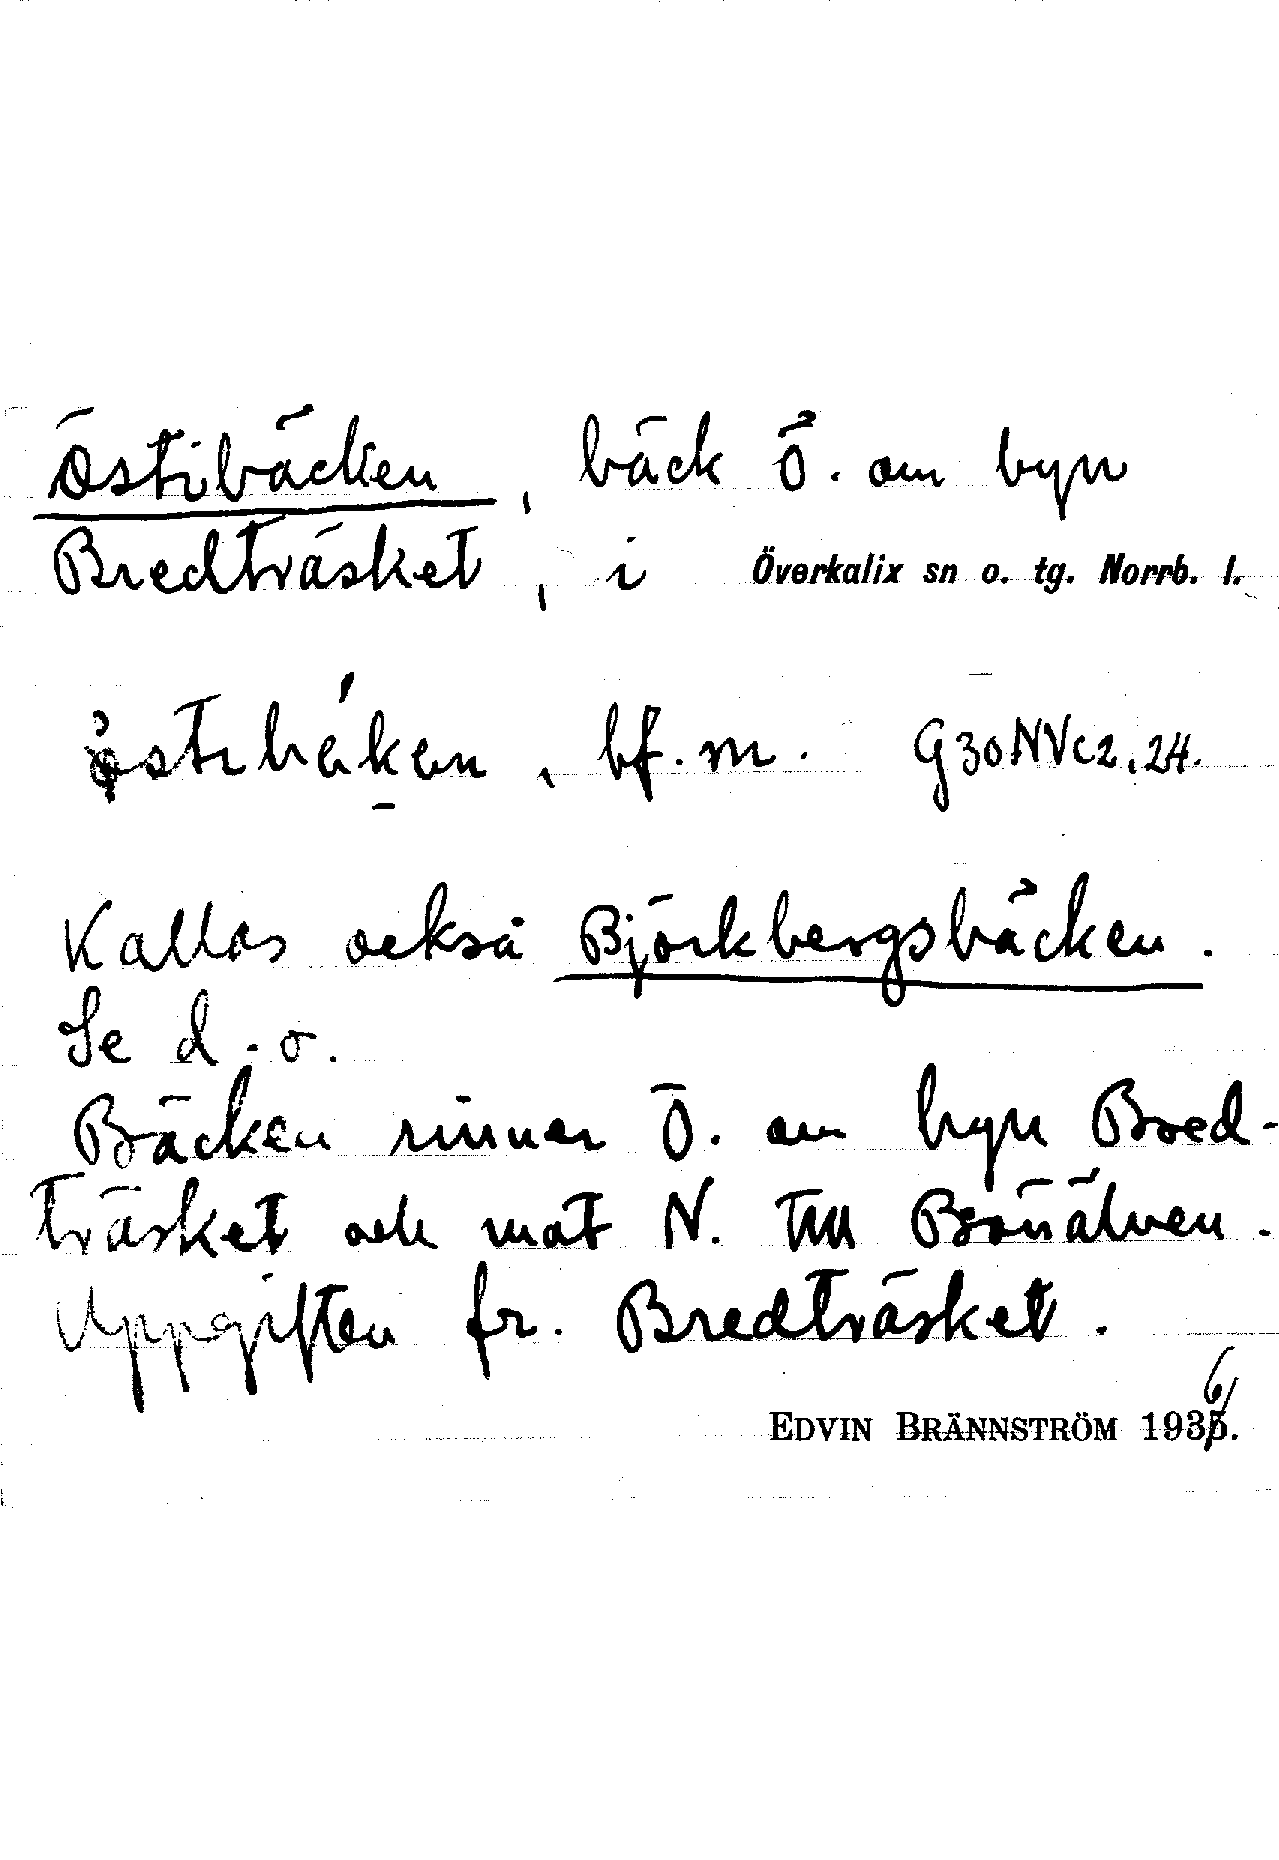 Östibäcken, bäck Ö. om byn
Bredträsket, i Överkalix sn o. tg. Norrb. l.
bf. m. G30NVc2,24.
Kallas också Björkbergsbäcken.
Se d. o.
Bäcken rinner Ö. om byn Bred-
träsket och mot N. till
Uppgiften fr. Bredträsket.
EDVIN BRÄNNSTRÖM 1936.